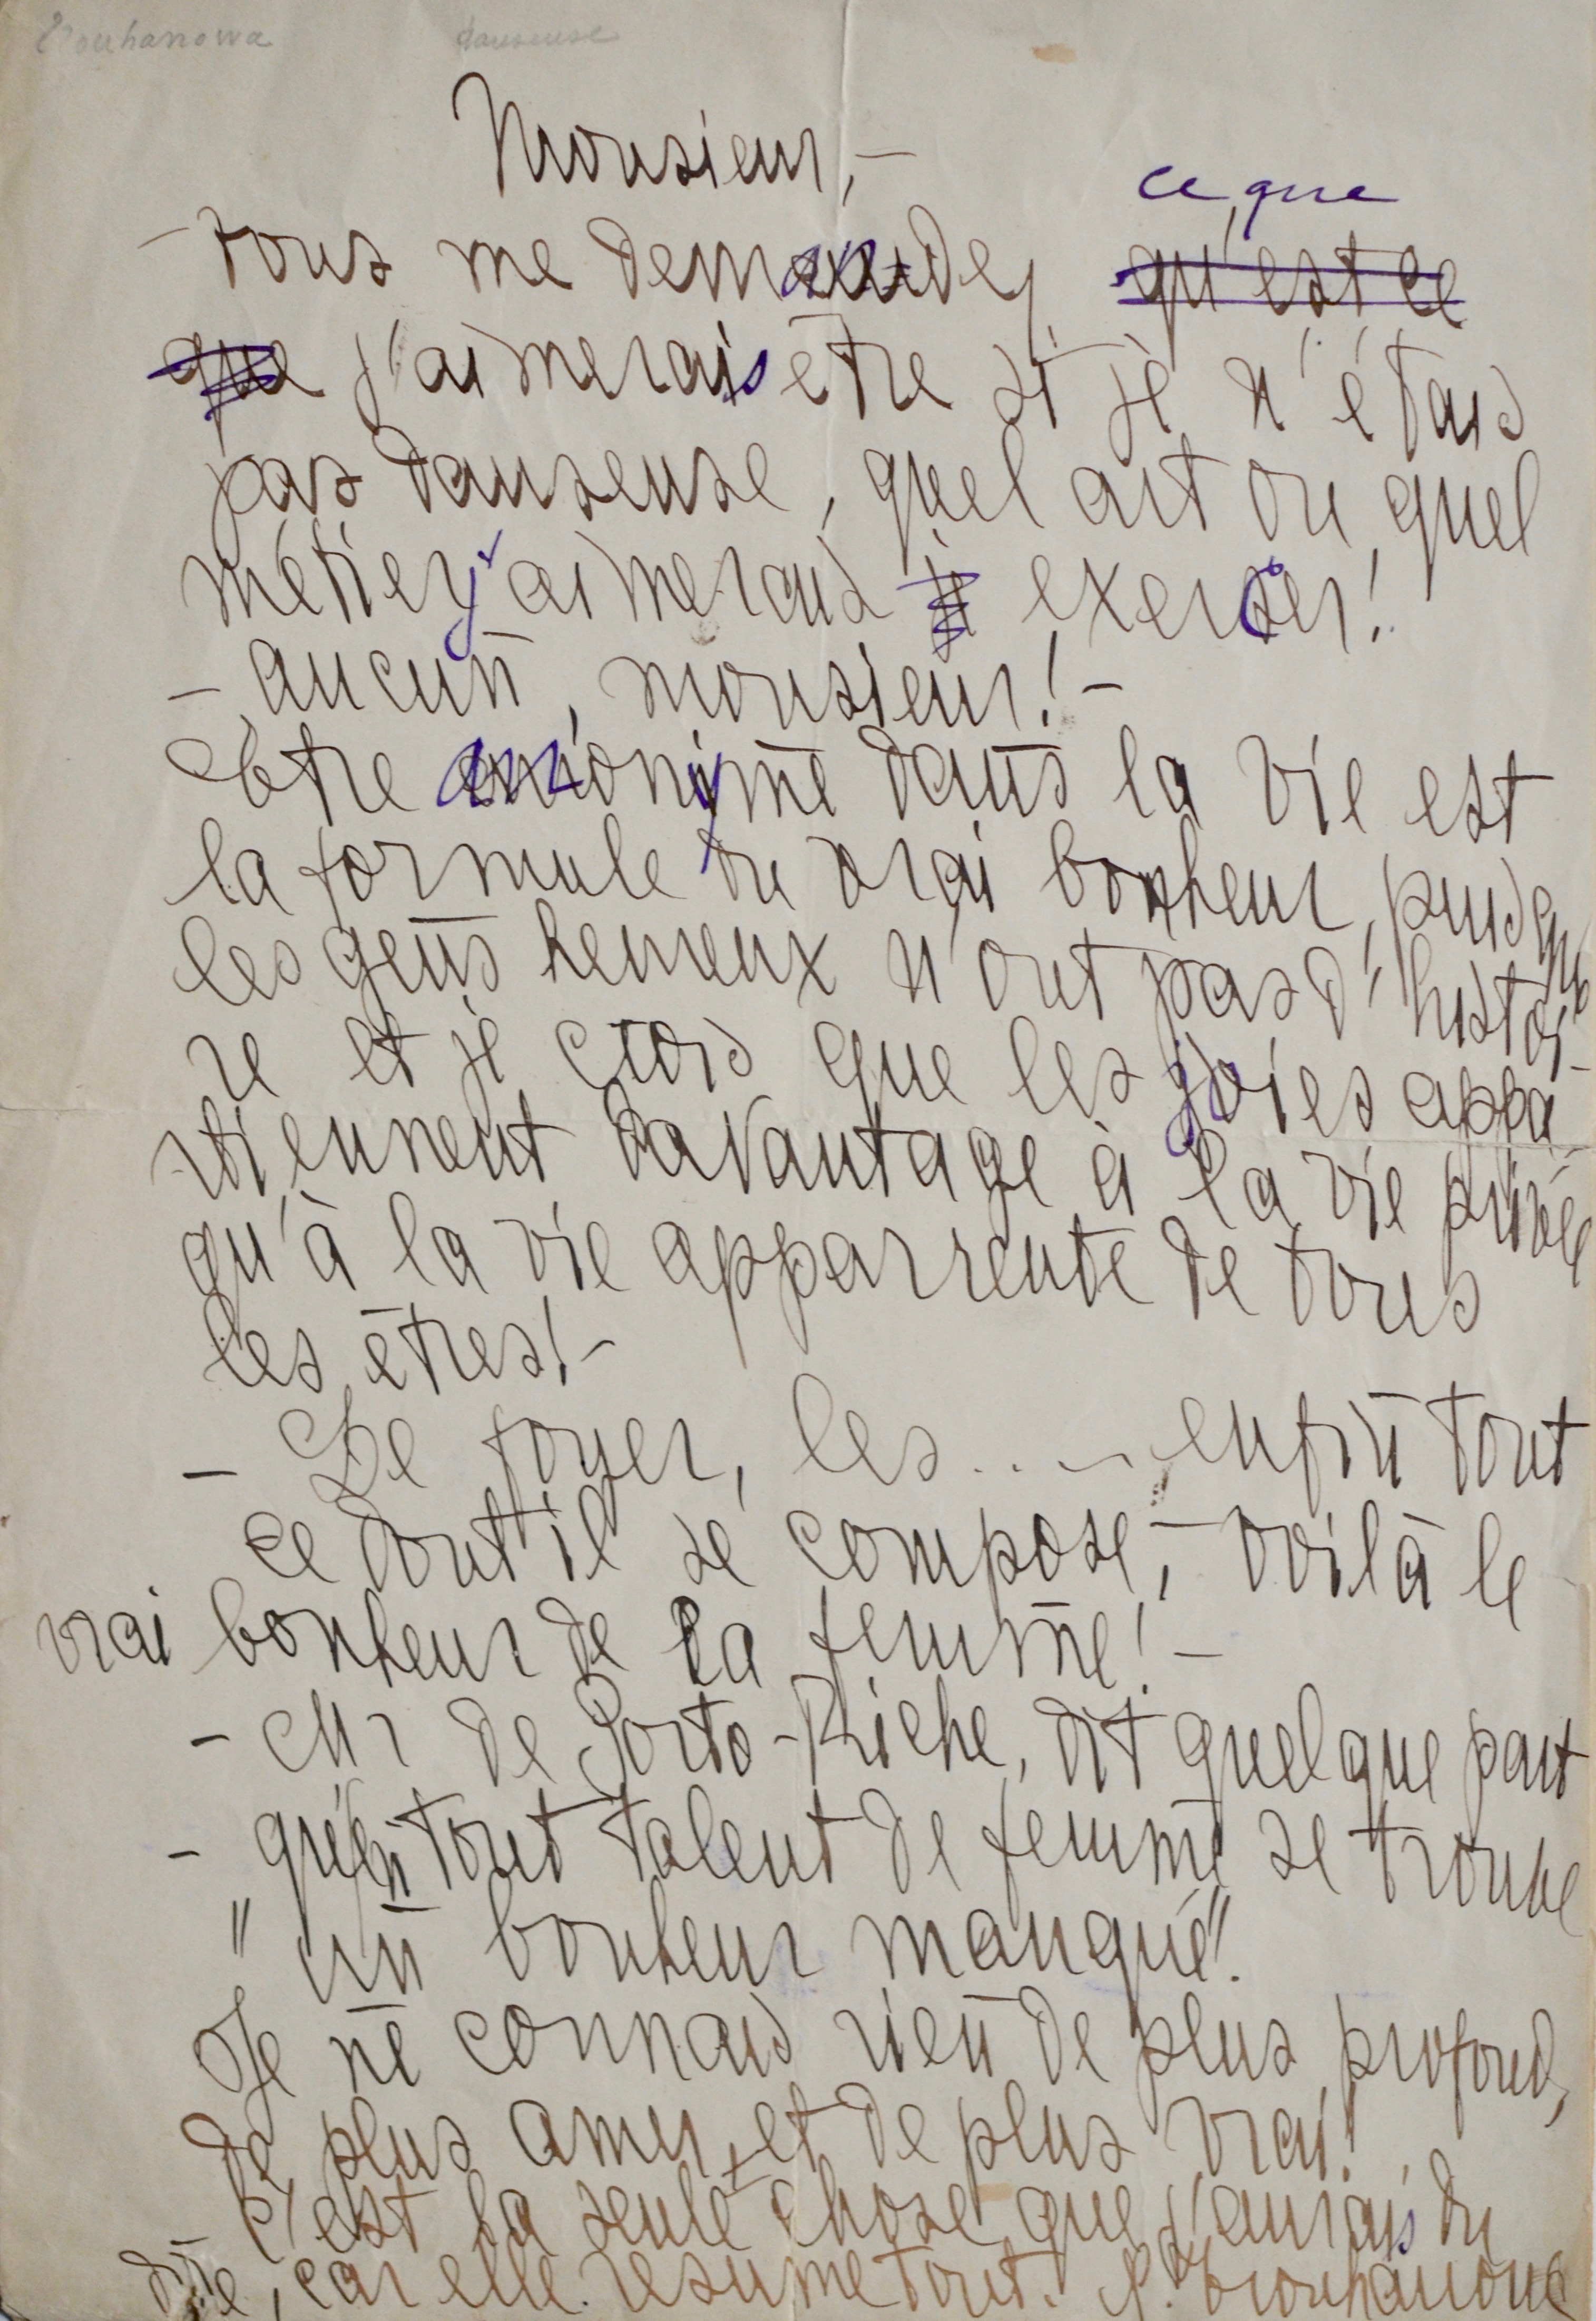 Trouhanowa danseuse
Monsieur, –
– Vous me demandez ce que qu'est ce
que j'aimerais être si je n'étais
pas danseuse, quel art ou quel
métier j'aimerais exercer!
– aucun, monsieur! –
Être anonyme dans la vie est
la formule du vrai bonheur, puisque
les gens heureux n'ont pas d'histoi-
re et je crois que les joies appa-
rtiennent davantage à la vie privée
qu'à la vie apparrente de tous
les êtres! –
– Le foyer, les .... enfin tout
ce dont il se compose, – voilà le
vrai bonheur de la femme! –
– Mr de Porto-Riche, dit quelque part
– qu'en tout talent de femme se trouve
" un bonheur manqué".
Je ne connais rien de plus profond,
de plus amer et de plus vrai!
– C'est la seule chose que j'aurais du
dire, car elle resume tout. N. Trouhanowa